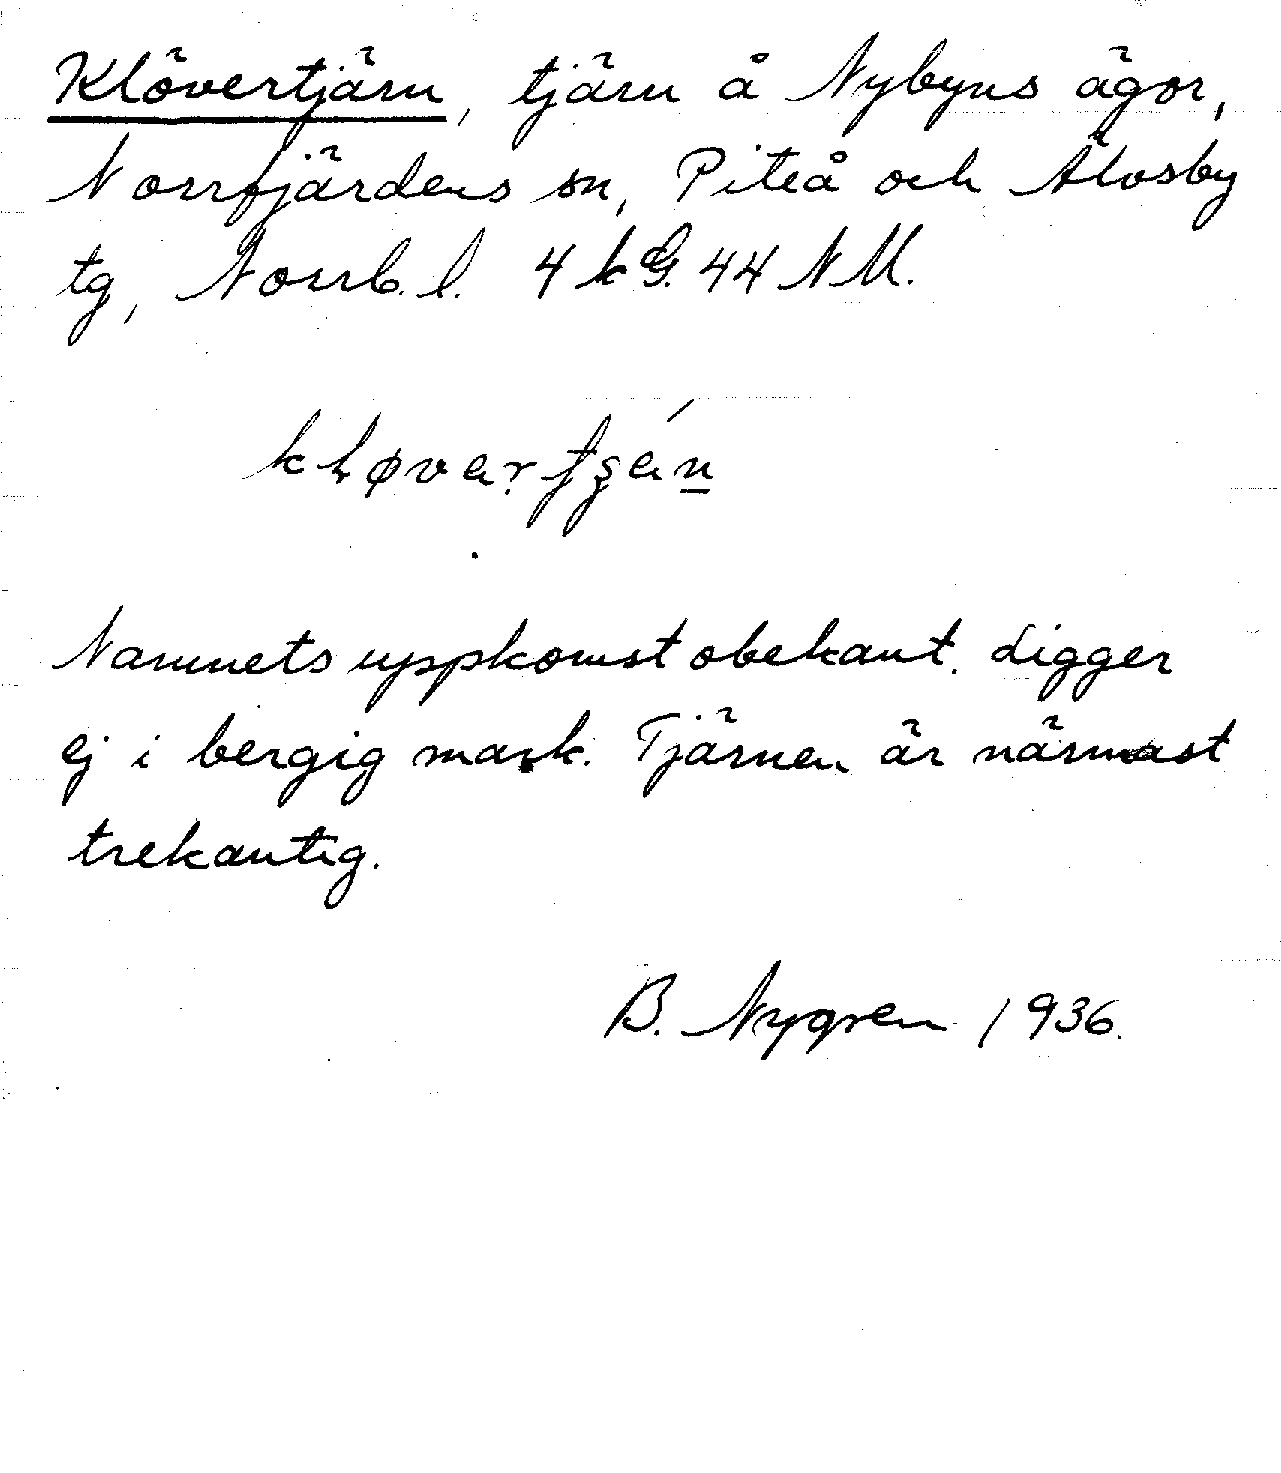 Klövertjärn, tjärn å Nybyns ägor,
Norrfjärdens sn, Piteå och Älvsby
tg, Norrb. l. 4 k G. 44 N M.
Namnets uppkomst obekant. Ligger
ej i bergig mark. Tjärnen är närmast
trekantig.
B. Nygren 1936.